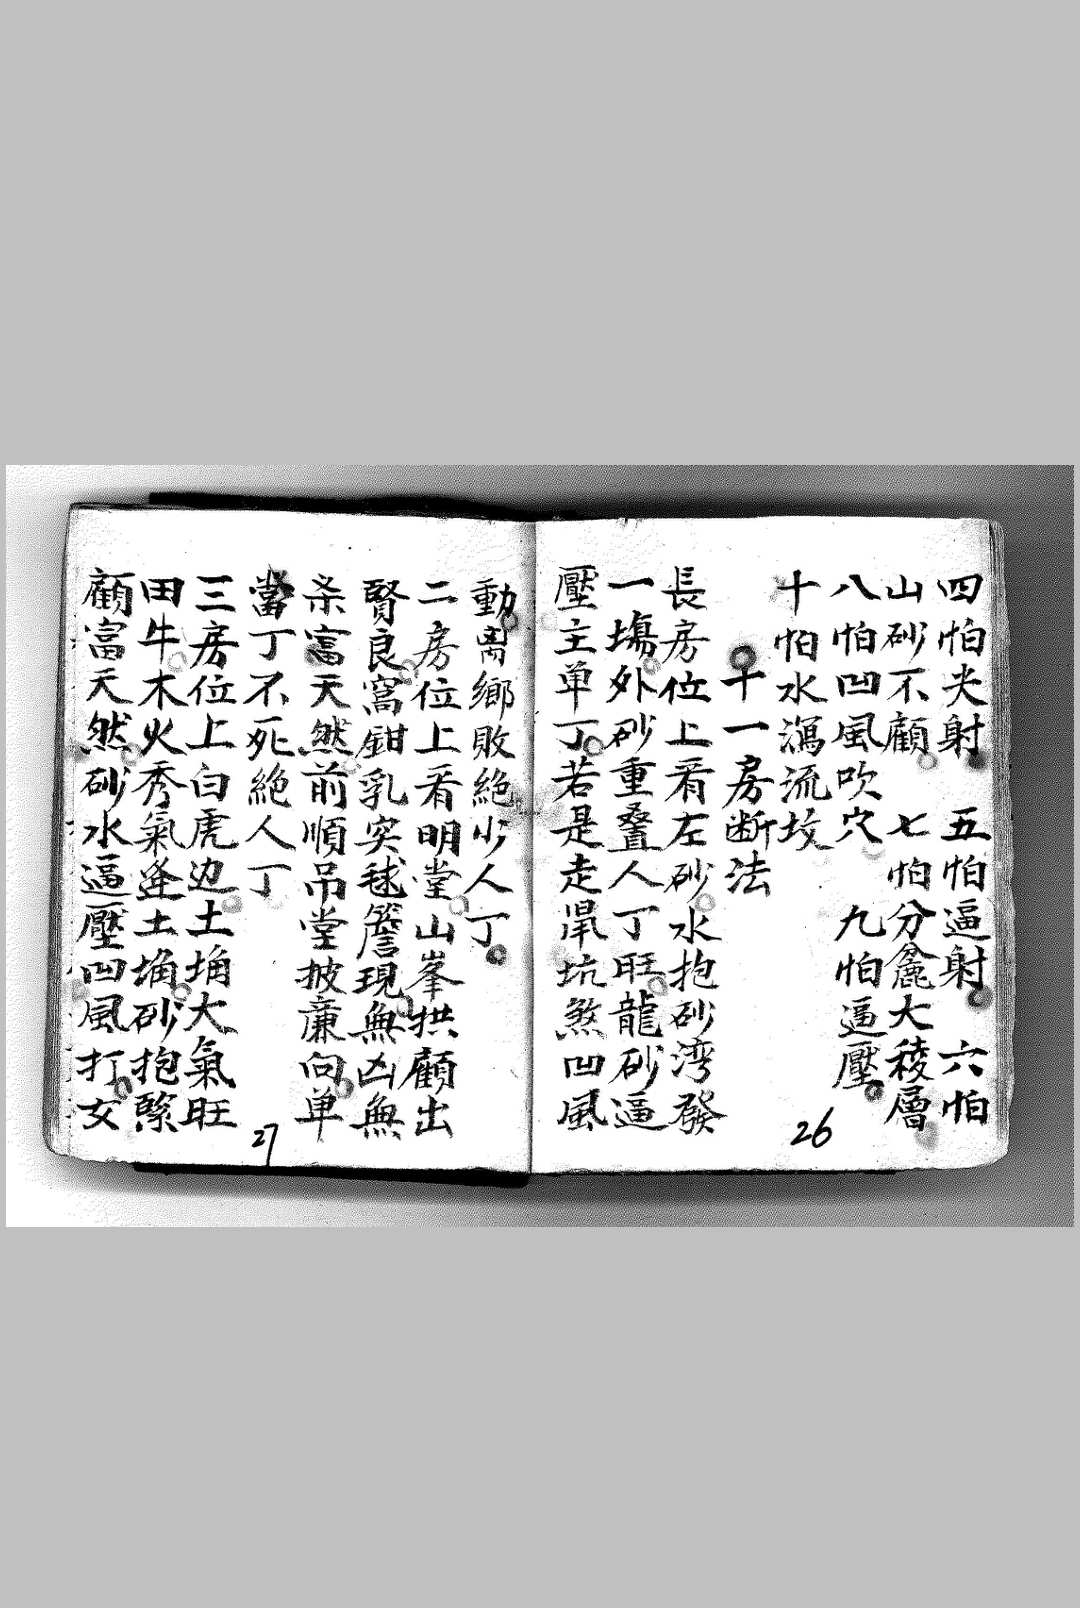 四怕尖射　五怕逼射　六怕
山砂不顧　七怕分龕大稜層
八怕凹風吹穴　九怕逼壓
十怕水瀉流坟
十一房断法
長房位上看左砂水抱砂湾發
一塲外砂重叠人丁旺龍砂逼
壓主单丁若是走鼠坑煞凹風
26
動离鄉敗絶少人丁
二房位上看明堂山峯拱顧出
賢良窩鉗乳突毬簷現無凶無
杀富天然前順吊堂披廉向单
當丁不死絶人丁
三房位上白虎边土埆大氣旺
田牛木火秀氣逢土埆砂抱緊
顧富天然砂水逼壓凹風打女
27